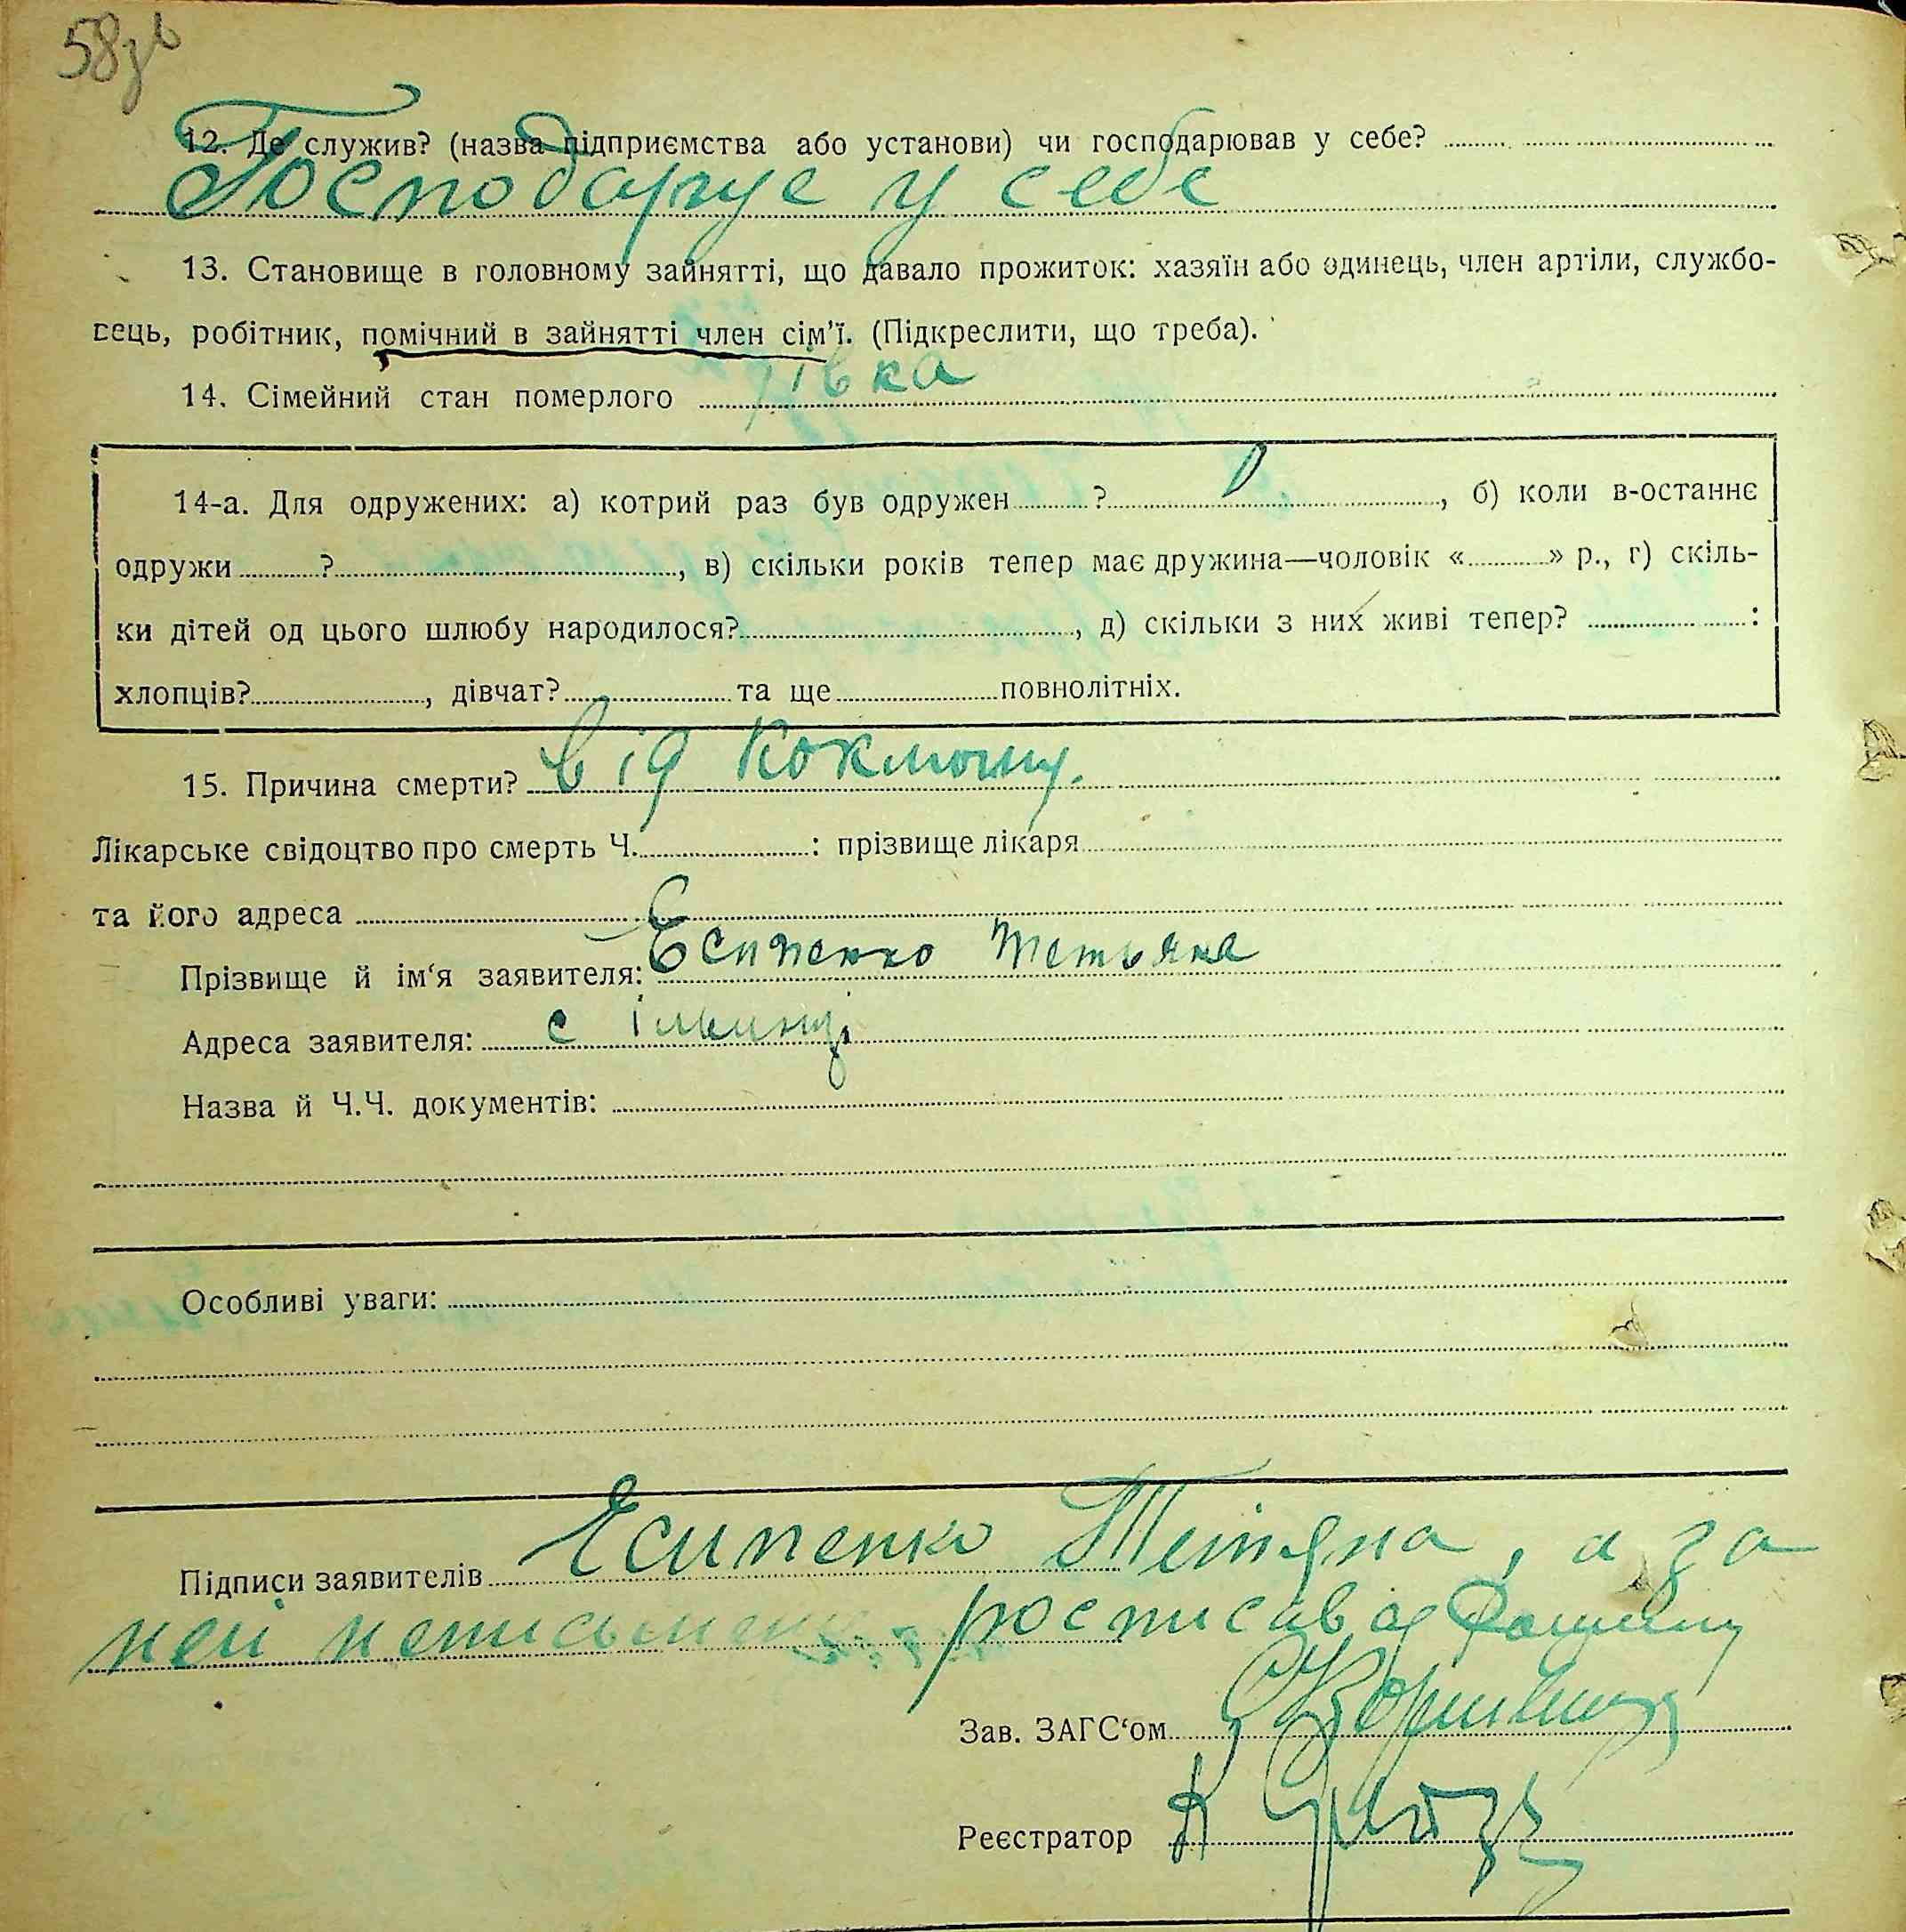 58зв
12. Де служив? (назва підприємства або установи) чи господарював у себе?
Господарує у себе
13. Становище в головному зайнятті, що давало прожиток: хазяїн або одинець, член артіли, службо-
вець, робітник, помічний в зайнятті член сім’ї. (Підкреслити, що треба).
14. Сімейний стан померлого дівка
14-а. Для одружених: а) котрий раз був одружен ? , б) коли в-останнє
одружи ? , в) скільки років тепер має дружина—чоловік « » р., г) скіль-
ки дітей од цього шлюбу народилося? , д) скільки з них живі тепер? :
хлопців? , дівчат? та ще повнолітніх.
15. Причина смерти? від Коклюшу.
Лікарське свідоцтво про смерть Ч. : прізвище лікаря
та його адреса
Прізвище й ім‘я заявителя: Есипенко Тетьяна
Адреса заявителя: с Ільинці
Назва й Ч.Ч. документів:
Особливі уваги:
Підписи заявителів Єсипенко Тетяна, а за
неї неписьмену росписавсь
Зав. ЗАГС‘ом
Реєстратор